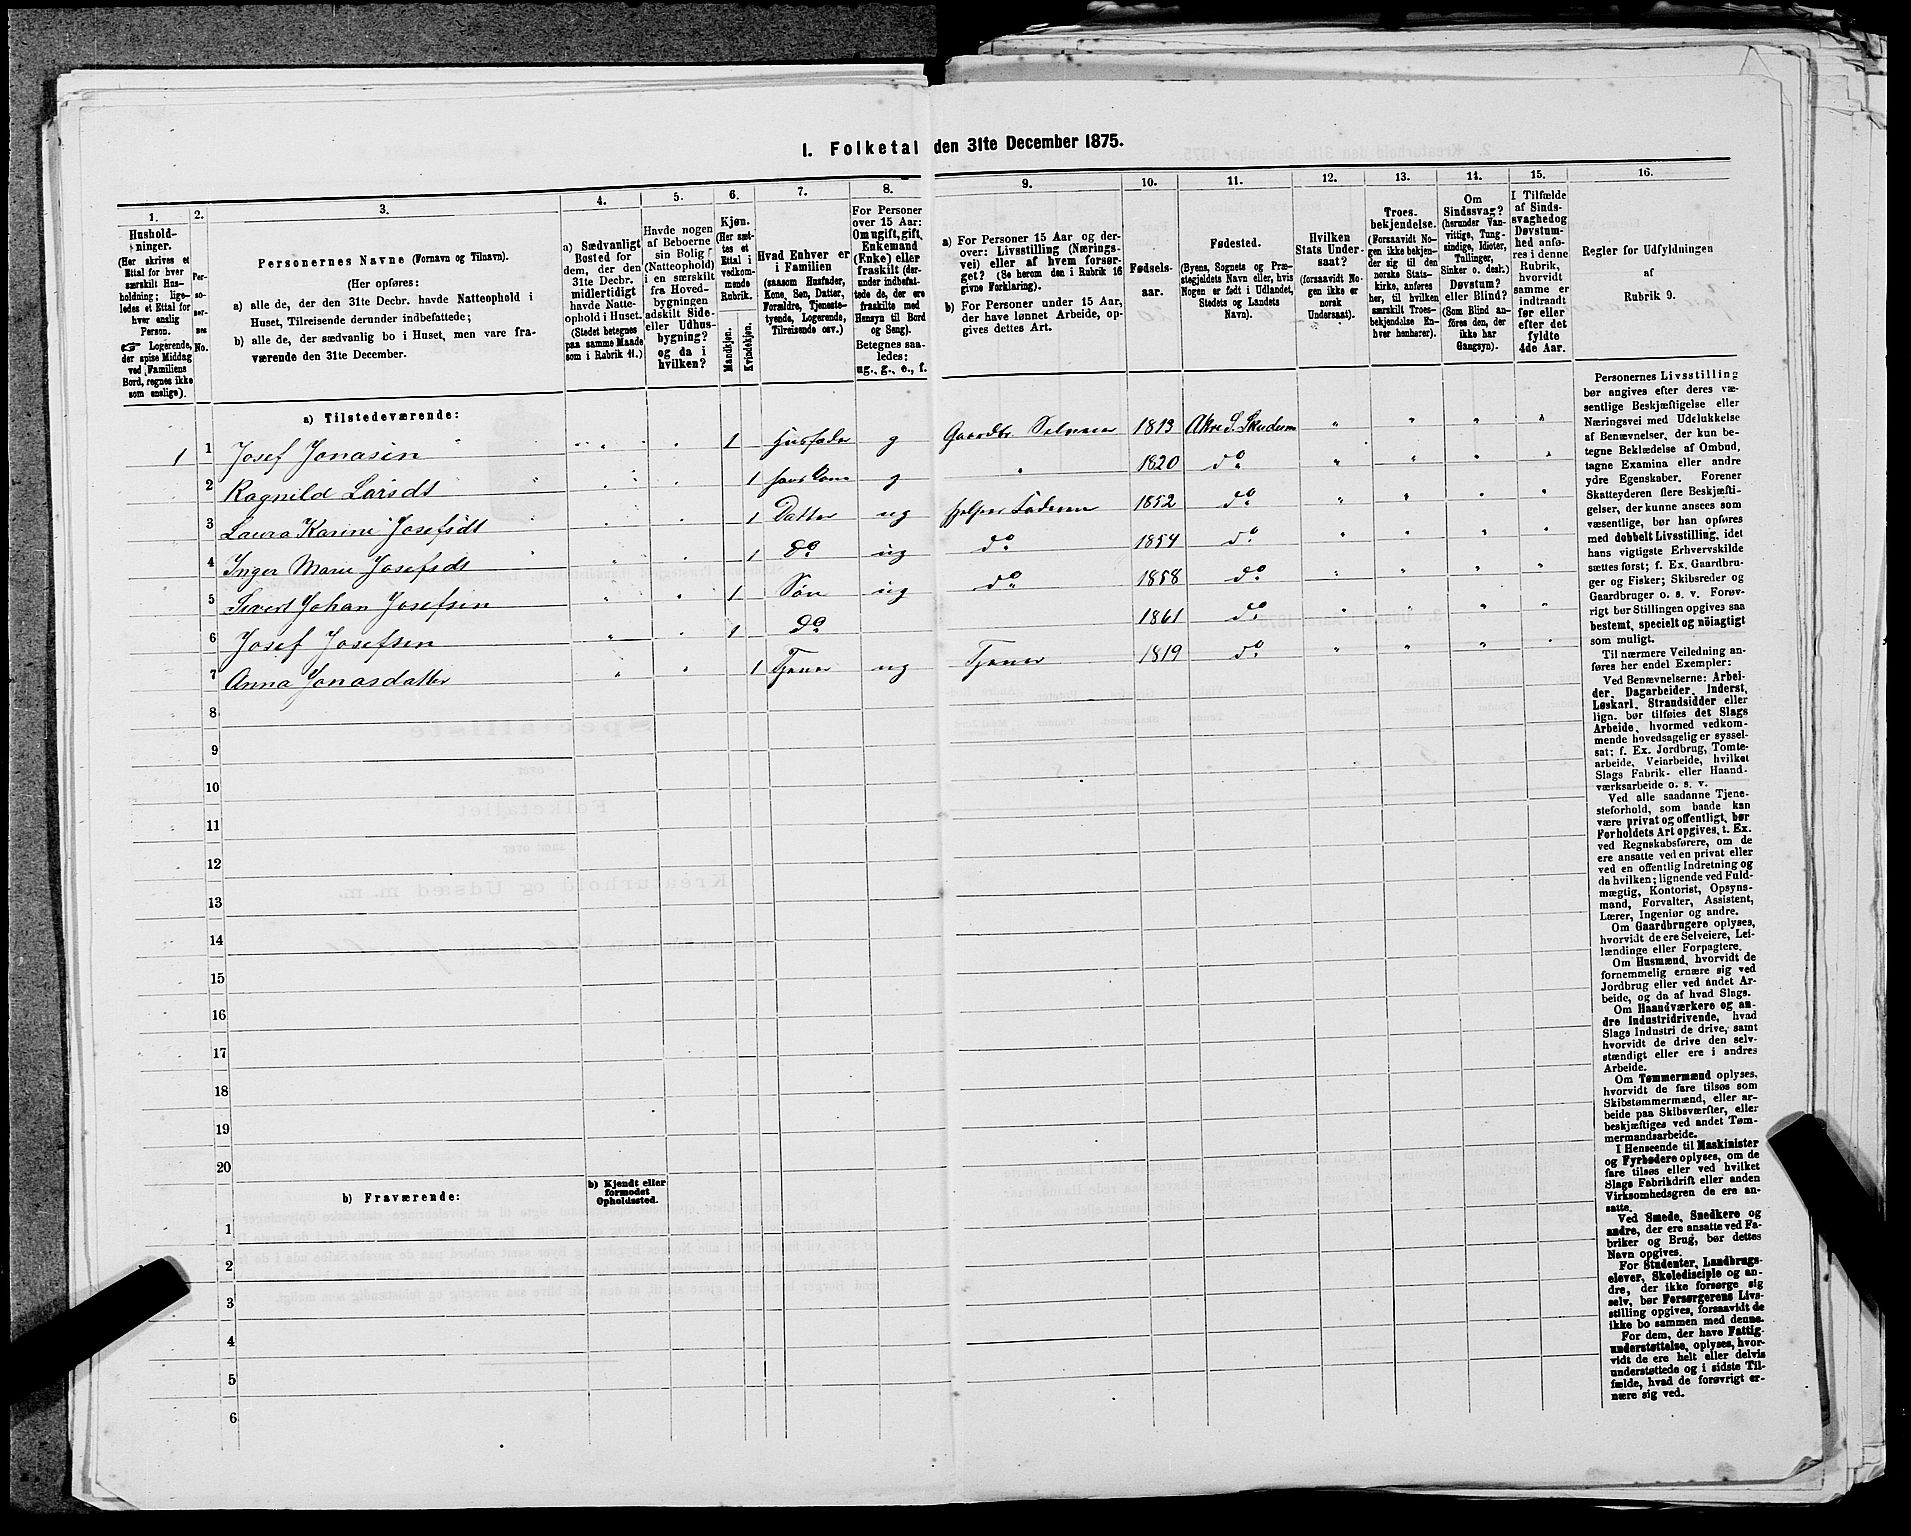 1. Folketal den 31te December 1875.
1.
Hushold-
ninger.
(Her skrives et
Ettal for hver
særskilt Hus-
holdning; lige-
ledes et Ettal for
hver enslig
Person.
☞ Logerende,
der spise Middag
ved Familiens
Bord, regnes ikke
som enslige).
2.
Per-
so-
ner-
nes
No.
3.
Personernes Navne (Fornavn og Tilnavn).
(Her opføres:
a) alle de, der den 31te Decbr. havde Natteophold i
Huset, Tilreisende derunder indbefattede;
b) alle de, der sædvanlig bo i Huset, men vare fra-
værende den 31te December.
4.
a) Sædvanligt
Bosted for
dem, der den
31te Decbr.
midlertidigt
havde Natte-
ophold i Huset.
(Stedet betegnes
paa samme Maade
som i Rubrik 11.)
5.
Havde nogen
af Beboerne
sin Bolig
(Natteophold)
i en særskilt
fra Hoved-
bygningen
adskilt Side-
eller Udhus-
bygning?
og da i
hvilken?
6.
Kjøn.
(Her sæt-
tes et
Ettal i
vedkom-
mende
Rubrik.
Mandkjøn.
Kvindekjøn.
7.
Hvad Enhver er
i Familien
(saasom Husfader,
Kone, Søn, Datter,
Forældre, Tjeneste-
tyende, Logerende,
Tilreisende osv.)
8.
For Personer
over 15 Aar:
Om ugift, gift,
Enkemand
(Enke) eller
fraskilt (der-
under indbefat-
tede de, der ere
fraskilte med
Hensyn til Bord
og Seng).
Betegnes saa-
ledes:
ug., g., e., f.
9.
a) For Personer 15 Aar og der-
over: Livsstilling (Nærings-
vei) eller af hvem forsør-
get? (Se herom den i Rubrik 16
givne Forklaring).
b) For Personer under 15 Aar,
der have lønnet Arbeide, op-
gives dettes Art.
10.
Fødsels-
aar.
11.
Fødested.
(Byens, Sognets og Præ-
stegjeldets Navn eller, hvis
Nogen er født i Udlandet,
Stedets og Landets
Navn).
12.
Hvilken
Stats Under-
saat?
(forsaavidt No-
gen ikke er
norsk
Undersaat).
13.
Troes-
bekjendelse.
(Forsaavidt No-
gen ikke bekjen-
der sig til den
norske Stats-
kirke, anføres
her, til hvilken
særskilt Troes-
bekjendelse En-
hver henhører).
14.
Om
Sindssvag?
(herunder Van-
vittige, Tung-
sindige, Idioter,
Tullinger,
Sinker o. desl.)
Døvstum?
eller Blind?
(Som Blind an-
føres den, der
ikke har
Gangsyn).
15.
I Tilfælde
af Sinds-
svaghed og
Døvstum-
hed anfø-
res i denne
Rubrik,
hvorvidt
samme er
indtraadt
før eller
efter det
fyldte
4de Aar.
16.
Regler for Udfyldningen
af
Rubrik 9.
a) Tilstedeværende:
1 1 Josef Jonasen " " 1 Husfader g Gaardbr. Selveier 1813 Akre S. Skudesn " " " "
2 Ragnild Larsdt " " 1 hans Kone g " 1820 do " " " "
3 Laura Karine Josefsdt " " 1 Datter ug hjelper Faderen 1852 do " " " "
4 Inger Marie Josefsdt " " 1 do ug do 1854 do " " " "
5 Sivert Johan Josefsen " " 1 Søn ug do 1858 do " " " "
6 Josef Josefsen " " 1 do 1861 do " " " "
7 Anna Jonasdatter " " 1 Tjener ug Tjener 1819 do " " " "
8
9
10
11
12
13
14
15
16
17
18
19
20
b) Fraværende:
b) Kjendt eller
formodet
Opholdssted.
1
2
3
4
5
6
Personernes Livsstilling
bør angives efter deres væ-
sentlige Beskjæftigelse eller
Næringsvei med Udelukkelse
af Benævnelser, der kun be-
tegne Beklædelse af Ombud,
tagne Examina eller andre
ydre Egenskaber. Forener
Skatteyderen flere Beskjæfti-
gelser, der kunne ansees som
væsentlige, bør han opføres
med dobbelt Livsstilling, idet
hans vigtigste Erhvervskilde
sættes først; f. Ex. Gaardbru-
ger og Fisker; Skibsreder og
Gaardbruger o. s. v. Forøv-
rigt bør Stillingen opgives saa
bestemt, specielt og nøiagtigt
som muligt.
Til nærmere Veiledning an-
føres her endel Exempler:
Ved Benævnelserne: Arbei-
der, Dagarbeider, Inderst,
Løskarl, Strandsidder eller
lign. bør tilføies det Slags
Arbeide, hvormed vedkom-
mende hovedsagelig er syssel-
sat; f. Ex. Jordbrug, Tomte-
arbeide, Veiarbeide, hvilket
Slags Fabrik- eller Haand-
værksarbeide o. s. v.
Ved alle saadanne Tjene-
steforhold, som baade kan
være privat og offentligt, bør
Forholdets Art opgives, t. Ex.
ved Regnskabsførere, om de
ere ansatte ved en privat eller
ved en offentlig Indretning og
da hvilken; lignende ved Fuld-
mægtig, Kontorist, Opsyns-
mand, Forvalter, Assistent,
Lærer, Ingeniør og andre.
Om Gaardbrugere oplyses,
hvorvidt de ere Selveiere, Lei-
lændinge eller Forpagtere.
Om Husmænd, hvorvidt de
fornemmelig ernære sig ved
Jordbrug eller ved andet Ar-
beide, og da af hvad Slags.
Om Haandværkere og an-
dre Industridrivende, hvad
Slags Industri de drive, samt
hvorvidt de drive den selv-
stændigt eller ere i andres
Arbeide.
Om Tømmermænd oplyses,
hvorvidt de fare tilsøs som
Skibstømmermænd, eller ar-
beide paa Skibsværfter, eller
beskjæftiges ved andet Tøm-
mermandsarbeide.
I Henseende til Maskinister
og Fyrbødere oplyses, om de
fare tilsøs eller ved hvilket
Slags Fabrikdrift eller anden
Virksomhedsgren de ere an-
satte.
Ved Smede, Snedkere og
andre, der ere ansatte ved Fa-
briker og Brug, bør dettes
Navn opgives.
For Studenter, Landbrugs-
elever, Skoledisciple og an-
dre, der ikke forsørge sig
selv, bør Forsørgerens Livs-
stilling opgives, forsaavidt de
ikke bo sammen med denne.
For dem, der have Fattig-
understøttelse, oplyses, hvor-
vidt de ere helt eller delvis
understøttede og i sidste Til-
fælde, hvad de forøvrigt er-
nære sig ved.